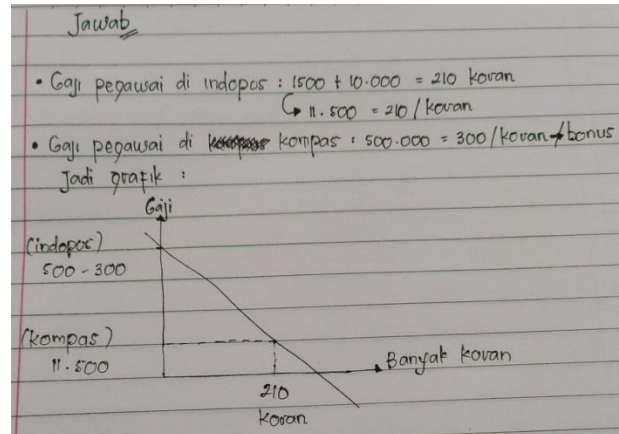 Jawab
• Gaji pegawai di indopos : 1500 + 10.000 = 210 koran
↳ 11.500 = 210 / koran
• Gaji pegawai di kompas : 500.000 = 300 / koran + bonus
Jadi grafik :
Gaji
(indopos)
500 - 300
(kompas)
11.500
Banyak koran
210
koran